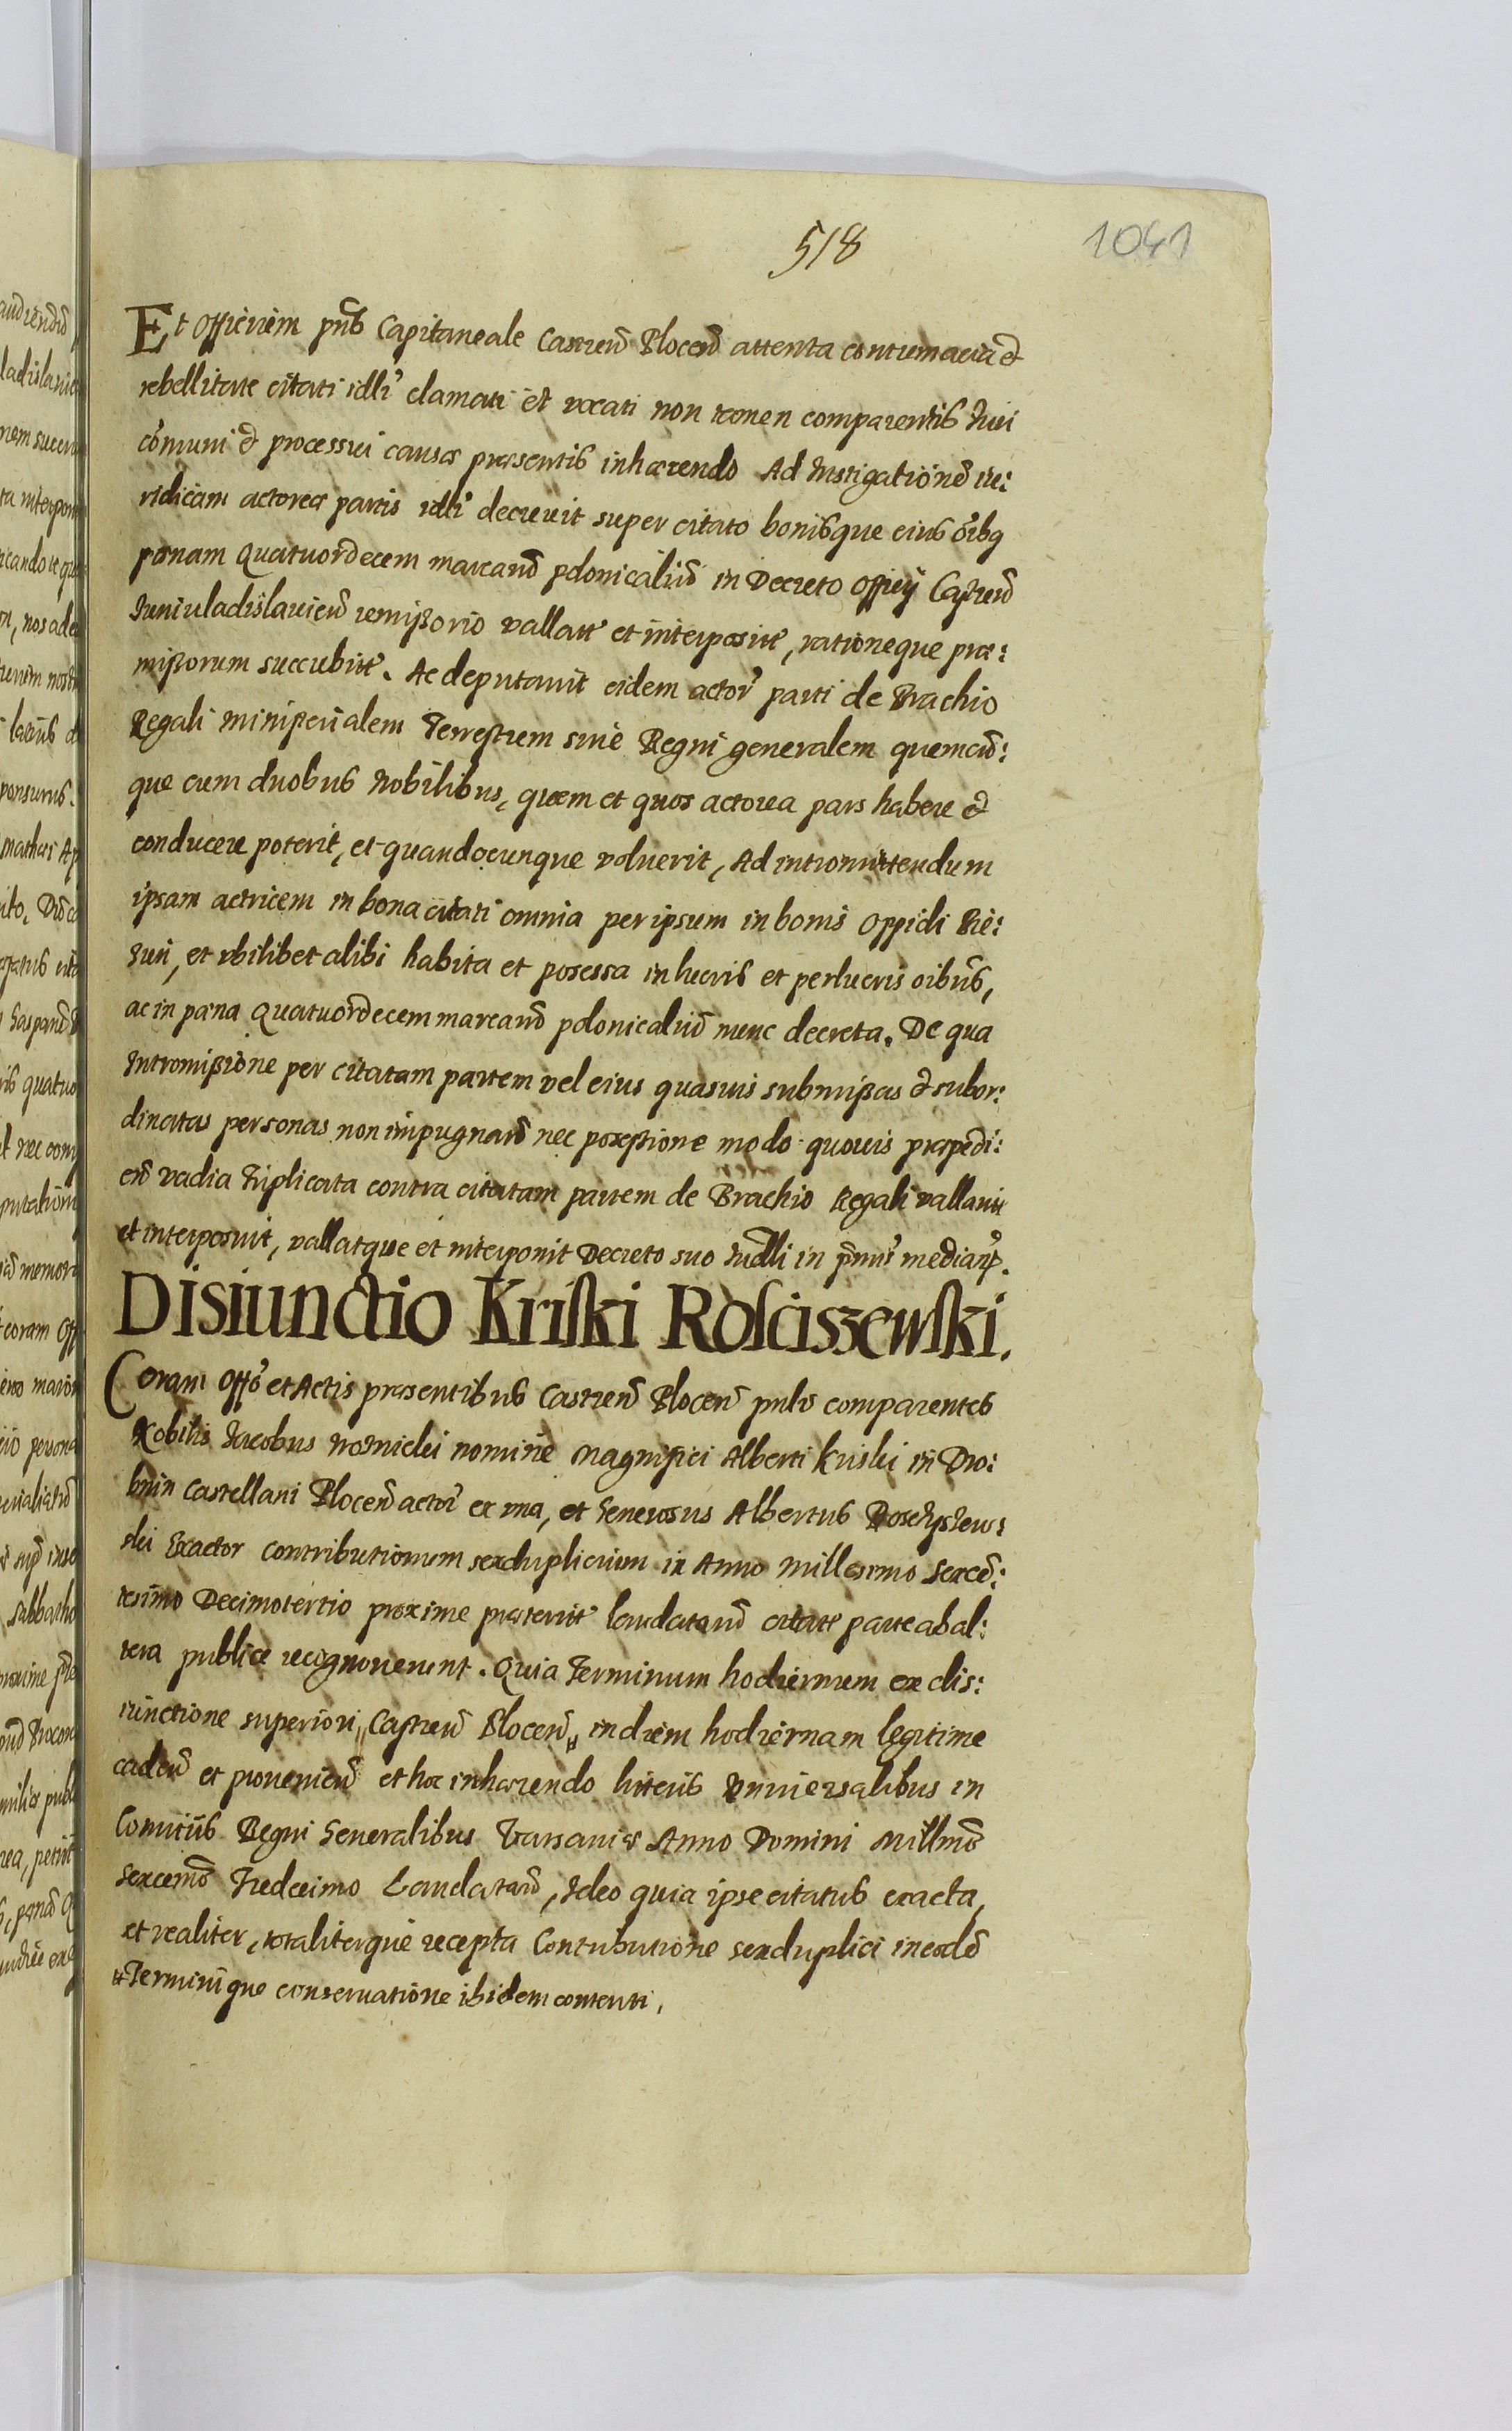 518
1041
Et Officium pñs Capitaneale Castreñ Ploceñ attenta contumacia et
rebellitate citati idlr clamati et vocati non tamen comparentis Iuri
cõmuni et processui causæ præsentis inhærendo Ad Instigationẽ iu:
ridicam actoreæ partis idlr decrevit super citato bonisque eius õibq
pænam Quatuordecem marcarũ polonicaliũ in Decreto Officij Castreñ
Iuniuladislavieñ remissorio vallatæ et interpositæ, rationeque præ:
missorum succubuisse. Ac deputavit eidem actor parti de Brachio
Regali ministerialem Terrestrem siue Regni generalem quemcũ:
que cum duobus Nobilibus, quem et quos actorea pars habere et
conducere poterit, et quandocunque voluerit, Ad intromittendum
ipsam actricem in bona citati omnia per ipsum in bonis Oppidi Bie:
zun, et ubilibet alibi habita et possessa in lucris et perlucris oibus,
ac in pæna Quatuordecem marcarũ polonicaliũ nunc decreta. De qua
Intromissione per citatam partem vel eius quasuis submissas et subor:
dinatas personas non impugnañ nec possessione modo quouis præpedi:
eñ vadia triplicata contra citatam partem de Brachio Regali vallauit
et interposuit, vallatque et interponit Decreto suo Iudlli in pñmis median.
Disiunctio Kriski Rosciszewski.
Coram Offo et Actis præsentibus Castreñ Ploceñ pnlr comparentes
Nobilis Jacobus nomine Magnifici Alberti Kriski in Dro:
bnin Castellani Ploceñ actor ex vna, et Generosus Albertus Rosczyszew:
ski Exactor Contributionum sexduplicium in Anno Millesimo Sexcẽ:
tesimo Decimotertio proxime præterito laudatarũ citatæ parte ab al:
tera publice recognoverunt. Quia Terminum hodiernum ex dis:
iunctione superiori Castreñ Ploceñ in diem hodiernam legitime
cadeñ et provenieñ et hoc inhærendo literis Vniversalibus in
Comitijs Regni Generalibus Varsaviæ Anno Domini Millmõ
Sexcentmõ Tredecimo Laudatarũ, Ideo quia ipse citatus exacta,
et realiter, totaliterque recepta Contributione sexduplici in eodẽ
Terminique conservatione ibidem contenti,